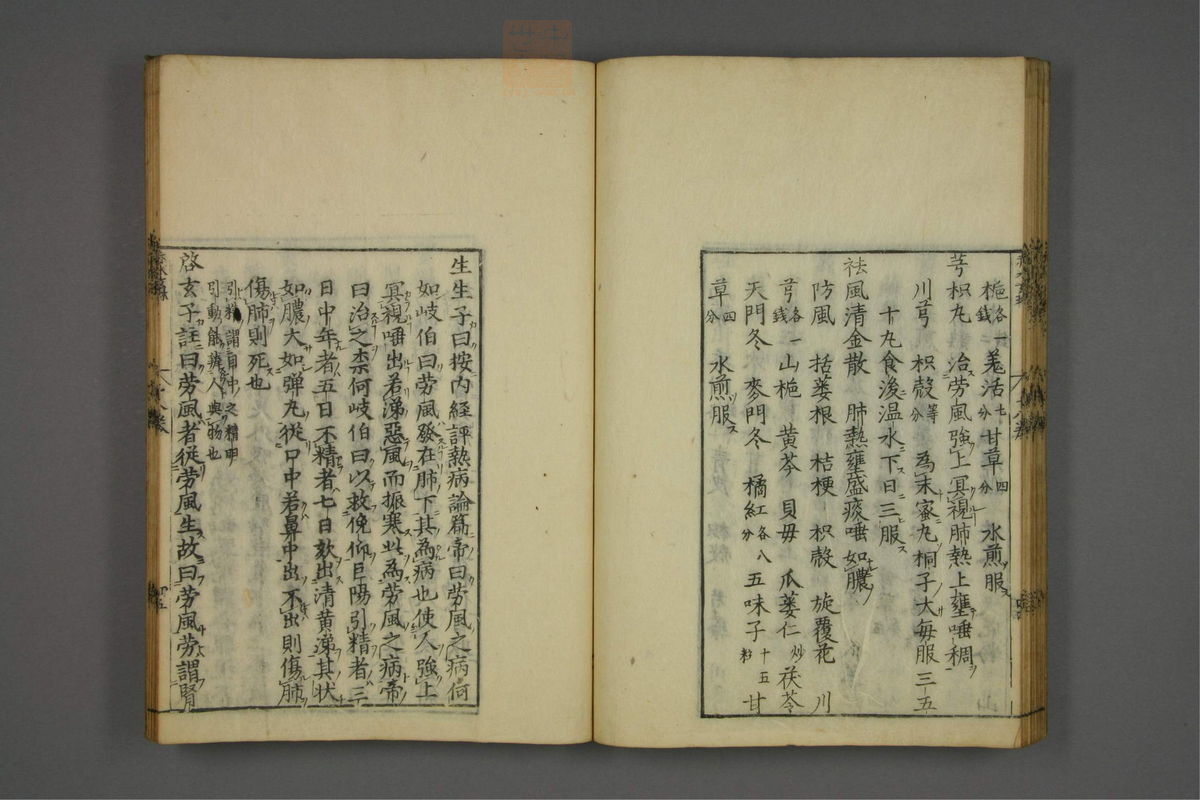 梔各二錢 羗活七分 甘草四分 水煎服
芎枳丸 治勞風強上冥視肺熱上壅唾稠
川芎 枳殼等分 為末蜜丸桐子大每服三五
十丸食後温水下日三服
祛風清金散 肺熱壅盛痰唾如膿
防風 括蔞根 桔梗 枳殼 旋覆花 川
芎各一錢 山梔 黃芩 貝毋 瓜蔞仁炒 茯苓
天門冬 麥門冬 橘紅各八分 五味子十五粒 甘
草四分 水煎服
生生子曰按内經評熱病論篇帝曰勞風之病何
如岐伯曰勞風發在肺下其為病也使人強上
冥視唾出若涕惡風而振寒此為勞風之病帝
曰治之柰何岐伯曰以救俛仰巨陽引精者三
日中年者五日不精者七日欬出清黄涕其状
如膿大如弾丸從口中若鼻中出不出則傷肺
傷肺則死也
引精謂目中之精甲
引動能辨人與物也
啓玄子註曰勞風者從勞風生故曰勞風勞謂腎